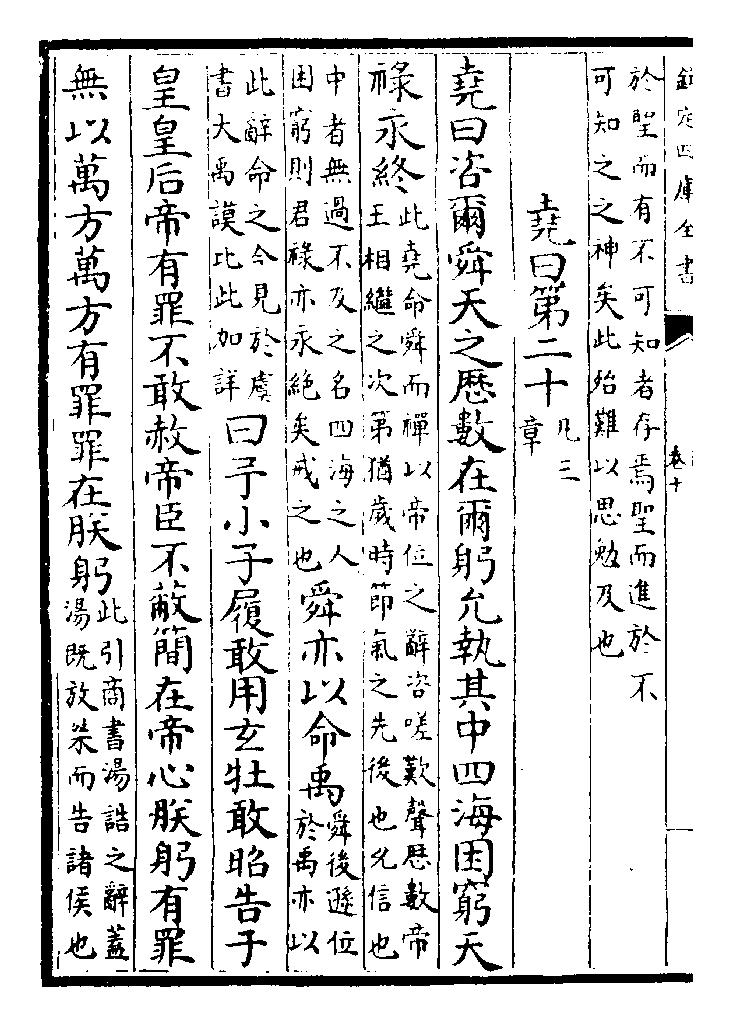 欽定四庫全書
卷十
於聖而有不可知者存焉聖而進於不
可知之之神矣此殆難以思勉及也
堯曰第二十
凡三
章
堯曰咨爾舜天之厯數在爾躬允執其中四海困窮天
祿永終
此堯命舜而禪以帝位之辭咨嗟歎聲厯數帝
王相繼之次第猶歲時節氣之先後也允信也
中者無過不及之名四海之人
困窮則君祿亦永絶矣戒之也
舜亦以命禹
舜後遜位
於禹亦以
此辭命之今見於虞
書大禹謨比此加詳
曰予小子履敢用玄牡敢昭告于
皇皇后帝有罪不敢赦帝臣不蔽簡在帝心朕躬有罪
無以萬方萬方有罪罪在朕躬
此引商書湯誥之辭蓋
湯既放桀而告諸侯也